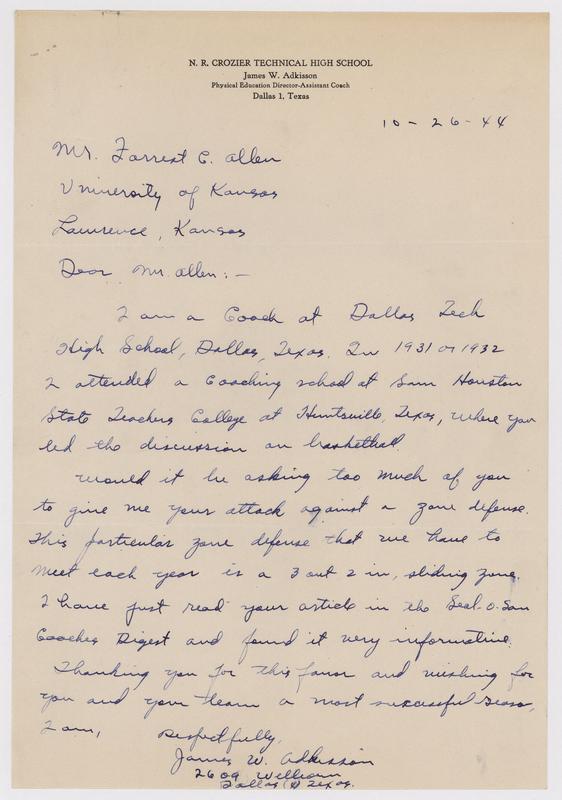 N. R. CROZIER TECHNICAL HIGH SCHOOL
James W. Adkisson
Physical Education Director-Assistant Coach
Dallas 1, Texas
10-26-44
Mr. Forrest C. Allen
University of Kansas
Lawrence, Kansas
Dear Mr. Allen:-
I am a Coach at Dallas Tech
High School, Dallas, Texas. In 1931 or 1932
I attended a Coaching school at Sam Houston
State Teachers College at Huntsville, Texas, where you
led the discussion on basketball.
Would it be asking too much of you
to give me your attack against a zone defense.
This particular zone defense that we have to
meet each year is a 3 out 2 in, sliding zone.
I have just read your article in the Seal-O-San
Coaches Digest and found it very informative.
Thanking you for this favor and wishing for
you and your team a most successful season,
I am,
Respectfully,
James W. Adkisson
2609 Welborn
Dallas Texas.